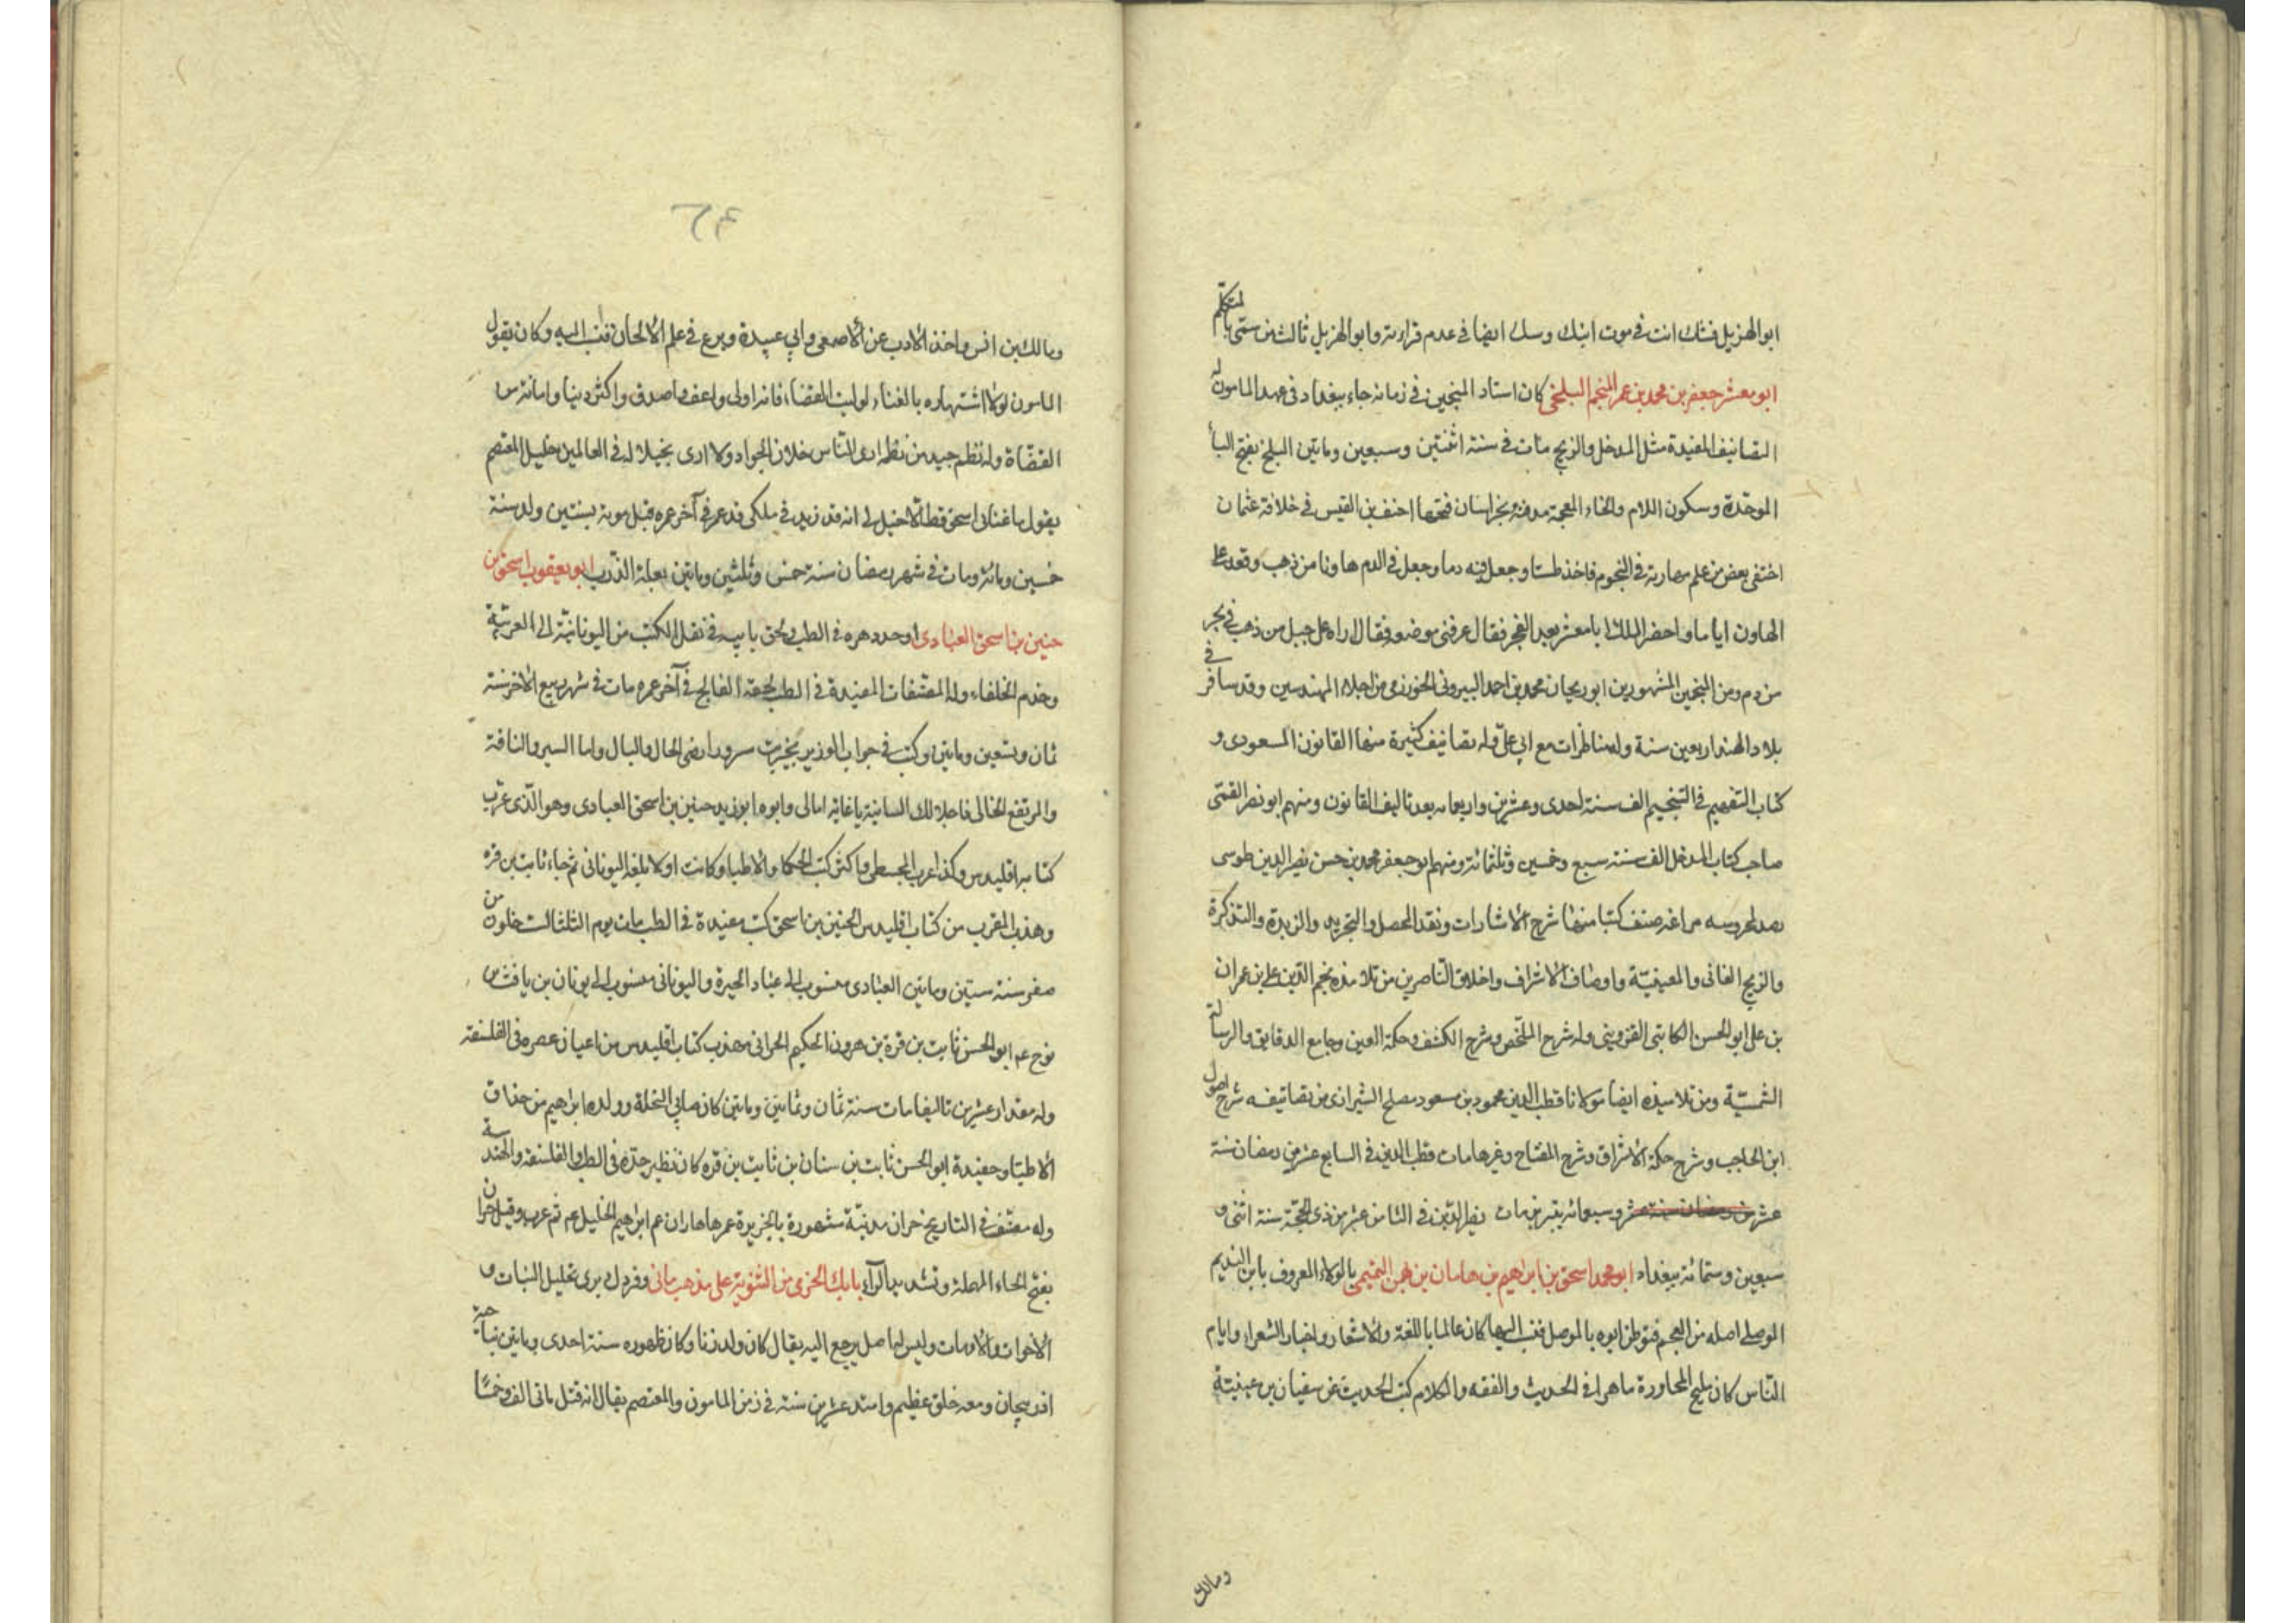 ابو الهزيل فشك انت في موت ابنك وسك ايضا في عدم قراءته وابو الهزيل ثالث من سمي بالمتكلم
ابو معشر جعفر بن محمد بن عمر المنجم البلخي كان استاد المنجمين في زمانه جاء ببغداد في عهد المامون له
التصانيف المفيدة مثل المدخل والزيج مات في سنة اثنتين وسبعين ومايتين البلخ بفتح الباء
الموحدة وسكون اللام والخاء المعجمة مدينة بخراسان فتحها احنف بن القيس في خلافة عثمان
اختفى بعض من علم مهارته في النجوم فاخذ طستا وجعل فيه دما وجعل في الدم هاونا من ذهب وقعد على
الهاون اياما واحضر الملك ابا معشر بعد العجز فقال عرفني موضعه فقال اراه على جبل من ذهب في بحر
من دم ومن المنجمين المشهورين ابو ريحان محمد بن احمد البيروني الخوارزمي من اجلاء المهندسين وقد سافر في
بلاد الهند اربعين سنة وله مناظرات مع ابي علي وله تصانيف كثيرة منها القانون المسعودي و
كتاب التفهيم في التنجيم الف سنة احدى وعشرين واربعمايه بعد تاليف القانون ومنهم ابو نصر القمي
صاحب كتاب المدخل الف سنة سبع وخمسين وثلثمائة ومنهم ابو جعفر محمد بن حسن نصير الدين طوسي
رصد بمحروسه مراغه صنف كتبا منها شرح الاشارات ونقد المحصل والتجريد والزبدة والتذكرة
والزيج الخاني والمعينية واوصاف الاشراف واخلاق الناصرين من تلامذه نجم الدين علي بن عمران
بن علي ابو الحسن الكاتبي القزويني وله شرح الملخص وشرح الكشف وحكمة العين وجامع الدقايق والرسالة
الشمسية ومن تلاميذه ايضا مولانا قطب الدين محمود بن مسعود مصلح الشيرازي من تصانيفه شرح اصول
ابن الحاجب وشرح حكمة الاشراق وشرح المفتاح وغيرها مات قطب الدين في السابع عشر من رمضان سنة
عشر وسبعمائه بتبريز مات نصير الدين في الثامن عشر من ذي الحجة سنة اثنى و
سبعين وستمائة ببغداد ابو محمد اسحق بن ابراهيم بن هامان بن بهمن التميمي بالولاء المعروف بابن النديم
الموصلي اصله من العجم فتوطن ابوه بالموصل فنسب اليها كان عالما باللغة والاشعار واخبار الشعراء وايام
الناس كان مليح المحاورة ماهرا في الحديث والفقه والكلام كتب الحديث عن سفيان بن عيينة
ومالك
٦٣
ومالك بن انس واخذ الادب عن الاصمعي وابي عبيدة وبرع في علم الالحان فنسب اليه وكان يقول
المامون لولا اشتهاره بالغناء لوليت القضاء فانه اولى واعف واصدق واكثر دينا وامانة من
القضاة وله نظم جيد من نظمه ارى الناس خلان الجواد ولا ارى بخيلا له في العالمين خليل المعتصم
يقول ما غناني اسحق قط الا خيل لي انه قد زيد في ملكي قد عمي في آخر عمره قبل موته بسنتين ولد سنة
خمسين ومائة ومات في شهر رمضان سنة خمس وثلثين ومايتين بعلة الذرب ابو يعقوب اسحق بن
حنين بن اسحق العبادي اوحد دهره في الطب لحق بابيه في نقل الكتب من اليونانية الى العربية
وخدم الخلفاء وله المصنفات المفيدة في الطب لحقه الفالج في آخر عمره مات في شهر ربيع الاخر سنة
ثمان وتسعين ومايتين وكتب في جواب الوزير بخير بت مسرورا رضي الحال والبال واما السير والناقة
والمرتفع الخالي فاجلالك انسانيه يا غاية امالي وابوه ابو زيد حنين بن اسحق العبادي وهو الذي عرب
كتاب اقليدس وكذا عرب المجسطي واكثر كتب الحكما والاطبا وكانت اولا بلغه اليوناني ثم جاء ثابت بن قره
وهذب المعرب من كتاب اقليدس لحنين بن اسحق كتب مفيدة في الطب مات يوم الثلثا لست خلون من
صفر سنة ستين ومايتين العبادي منسوب الى عباد الحيرة واليوناني منسوب الى يونان بن يافث بن
نوح عم ابو الحسن ثابت بن قرة بن هرون الحكيم الحراني مهذب كتاب اقليدس من اعيان عصره في الفلسفة
وله مقدار عشرين تاليفا مات سنة ثمان وثمانين ومايتين كان صابي النحلة وولده ابراهيم من حذاق
الاطبا وحفيدة ابو الحسن ثابت بن سنان بن ثابت بن قره كان نظير جده في الطب والفلسفة والهندسة
وله مصنف في التاريخ حران مدينة مشهورة بالجزيرة عمرها هاران عم ابراهيم الخليل عم ثم عرب وقيل حران
بفتح الحاء المهملة وتشديد الراء بابك الخرمي من الثنوية على مذهب ماني ومزدك يرى تحليل البنات و
الاخوات والامهات وليس لها اصل يرجع اليه يقال كان ولد زنا وكان ظهوره سنة احدى ومايتين بناحية
اذربيجان ومعه خلق عظيم وامتد عشرين سنة في زمن المامون والمعتصم يقال انه قتل مائي الف وخمسا